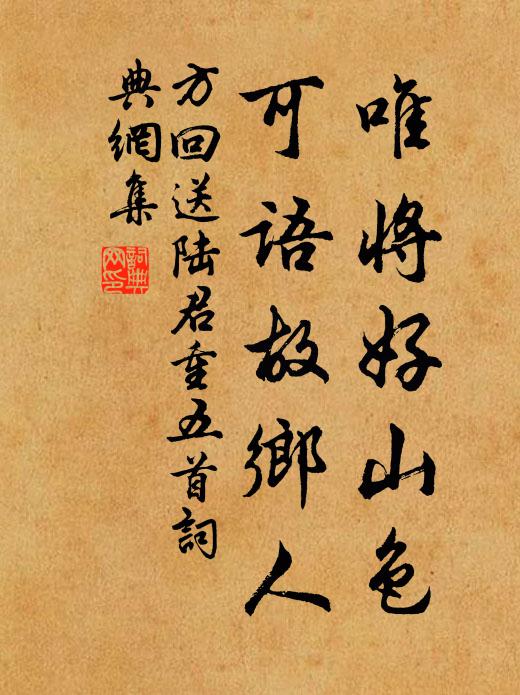 唯將好山色
可語故鄉人
方回送陸君重五首詞
典網集
詞典網印